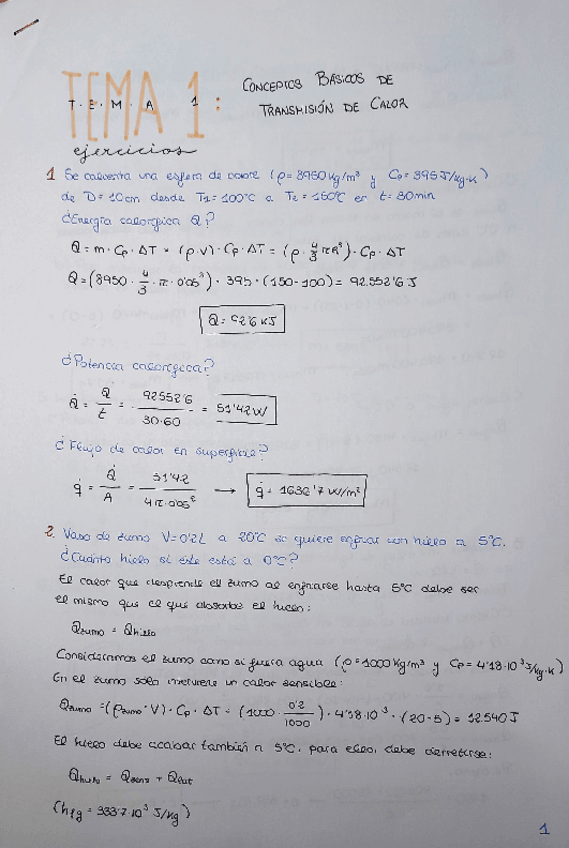 TEMA 1: CONCEPTOS BÁSICOS DE
T·E·M·A 1 TRANSMISIÓN DE CALOR
ejercicios
1 Se calienta una esfera de cobre (ρ=8950 Kg/m³ y Cp=395 J/Kg·K)
de D=10cm desde T1=100°C a T2=150°C en t=30min
¿Energía calorífica Q?
Q=m·Cp·ΔT = (ρ·V)·Cp·ΔT = (ρ·4/3 πR³)·Cp·ΔT
Q=(8950·4/3·π·0'05³)·395·(150-100)=92.552'6J
Q=92'6 KJ
¿Potencia calorífica?
Q̇ = Q/t = 92552'6/30·60 = 51'42W
¿Flujo de calor en superficie?
q̇ = Q̇/A = 51'42/4π·0'05² → q̇=1636'7 W/m²
2. Vaso de zumo V=0'2L a 20°C se quiere enfriar con hielo a 5°C.
¿Cuánto hielo si éste está a 0°C?
El calor que desprende el zumo al enfriarse hasta 5°C debe ser
el mismo que el que absorbe el hielo:
Qzumo = Qhielo
Consideramos el zumo como si fuera agua (ρ=1000 Kg/m³ y Cp=4'18·10³ J/Kg·K)
En el zumo solo interviene un calor sensible:
Qzumo=(ρzumo·V)·Cp·ΔT = (1000·0'2/1000)·4'18·10³·(20-5)=12.540J
El hielo debe acabar también a 5°C, para ello, debe derretirse:
Qhielo = Qsens + Qlat
(hfg = 333'7·10³ J/Kg)
1